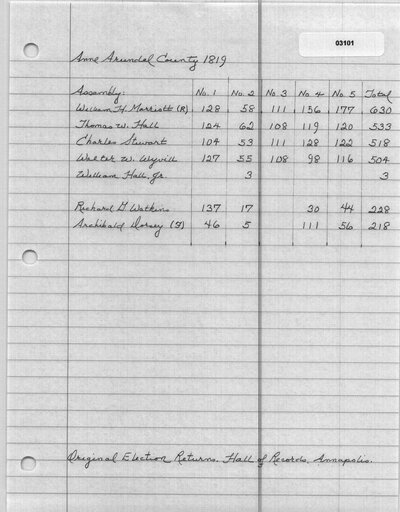 03101
Anne Arundel County 1819
Assembly: No. 1 No. 2 No. 3 No. 4 No. 5 Total
William H. Marriott (R) 128 58 111 156 177 630
Thomas W. Hall 124 62 108 119 120 533
Charles Stewart 104 53 111 128 122 518
Walter W. Wyvill 127 55 108 98 116 504
William Hall, Jr. 3 3
Richard G Watkins 137 17 30 44 228
Archibald Dorsey (F) 46 5 111 56 218
Original Election Returns. Hall of Records. Annapolis.